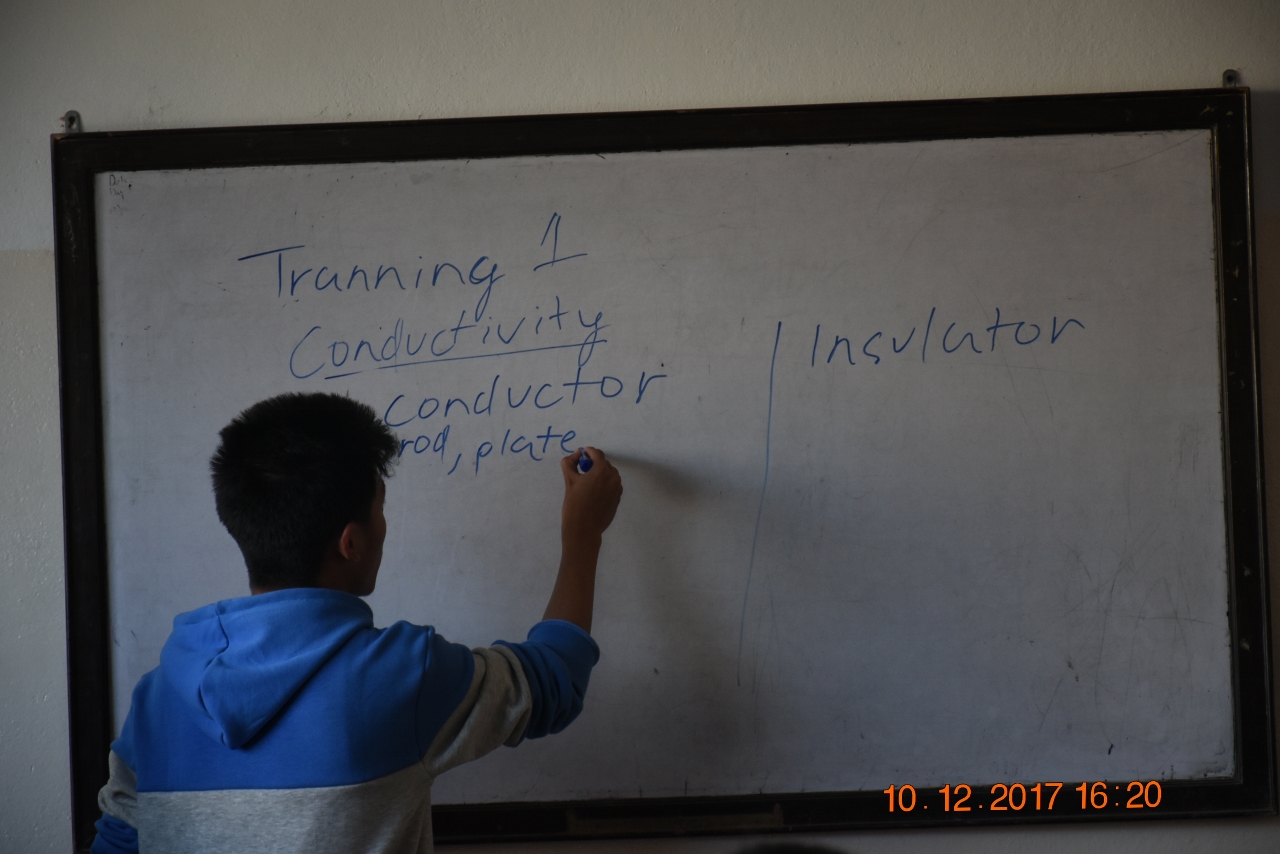 Tranning 1
Conductivity
conductor
rod, plate
Insulator
10.12.2017 16:20